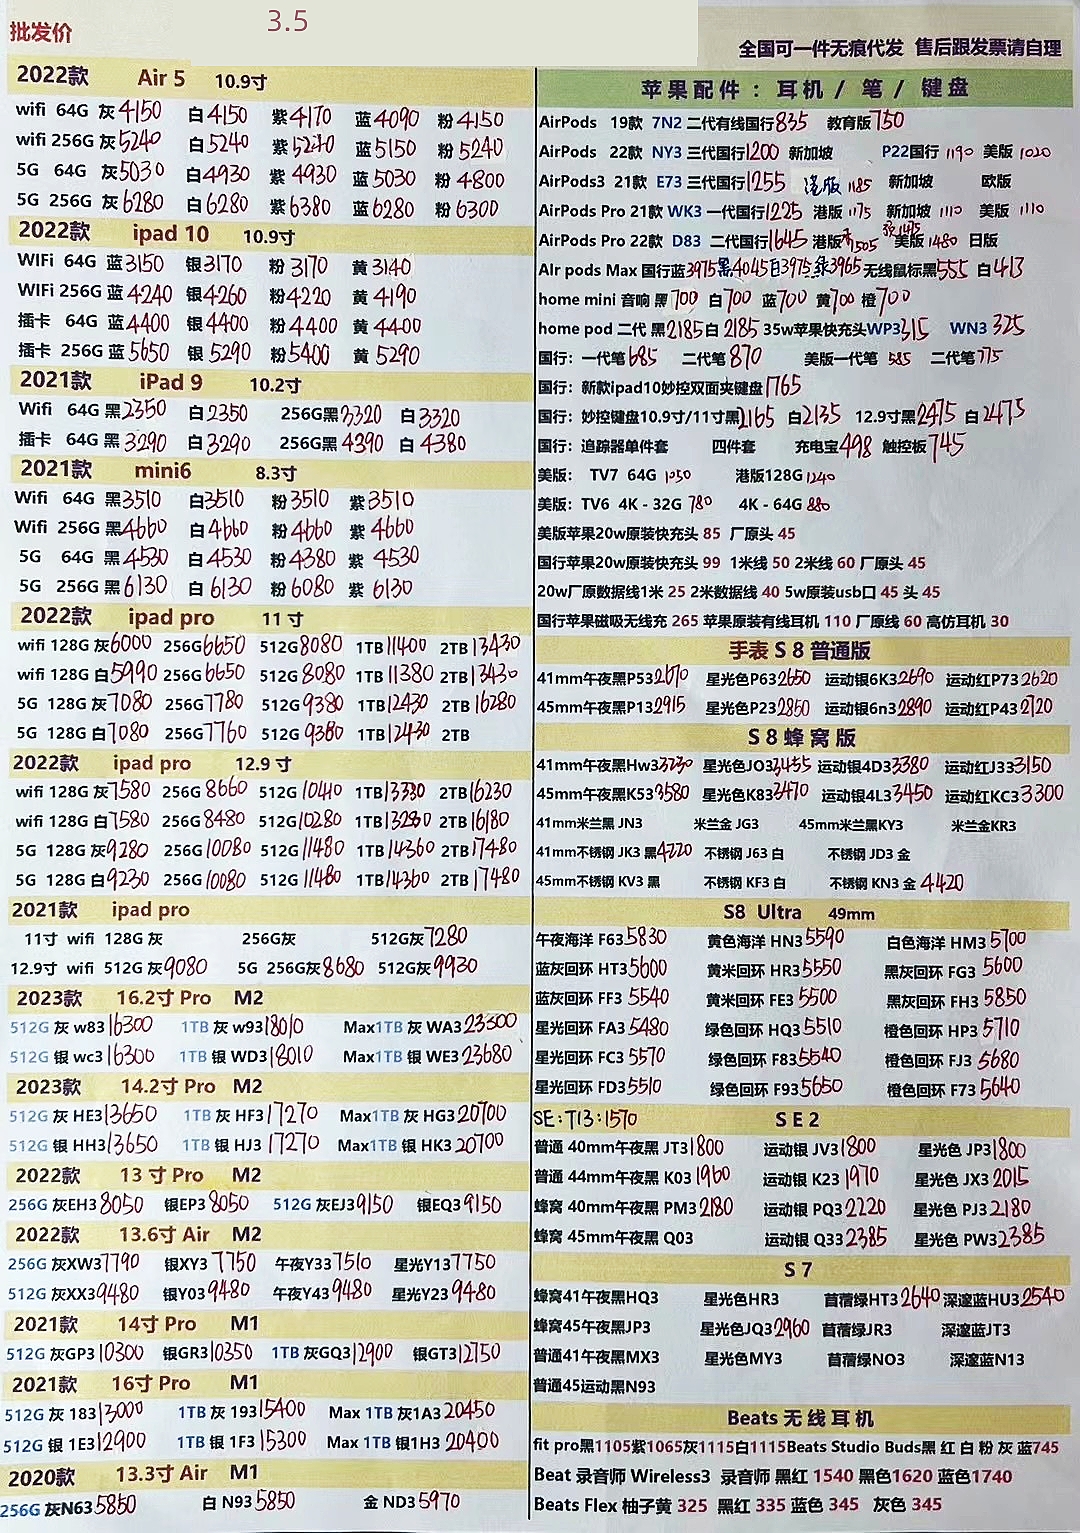 批发价
3.5
全国可一件无痕代发 售后跟发票请自理
2022款 Air 5 10.9寸
wifi 64G 灰4150 白4150 紫4170 蓝4090 粉4150
wifi 256G 灰5240 白5240 紫5270 蓝5150 粉5240
5G 64G 灰5030 白4930 紫4930 蓝5030 粉4800
5G 256G 灰6280 白6280 紫6380 蓝6280 粉6300
2022款 ipad 10 10.9寸
WIFi 64G 蓝3150 银3170 粉3170 黄3140
WIFi 256G 蓝4240 银4260 粉4220 黄4190
插卡 64G 蓝4400 银4400 粉4400 黄4400
插卡 256G 蓝5650 银5290 粉5400 黄5290
2021款 iPad 9 10.2寸
Wifi 64G 黑2350 白2350 256G黑3320 白3320
插卡 64G 黑3290 白3290 256G黑4390 白4380
2021款 mini6 8.3寸
Wifi 64G 黑3510 白3510 粉3510 紫3510
Wifi 256G 黑4660 白4660 粉4660 紫4660
5G 64G 黑4530 白4530 粉4380 紫4530
5G 256G 黑6130 白6130 粉6080 紫6130
2022款 ipad pro 11寸
wifi 128G 灰6000 256G6650 512G8080 1TB11400 2TB13430
wifi 128G 白5990 256G6650 512G8080 1TB11380 2TB13430
5G 128G 灰7080 256G7780 512G9380 1TB12430 2TB16280
5G 128G 白7080 256G7760 512G9380 1TB12430 2TB
2022款 ipad pro 12.9寸
wifi 128G 灰7580 256G8660 512G10410 1TB13330 2TB16230
wifi 128G 白7580 256G8480 512G10280 1TB13280 2TB16180
5G 128G 灰9280 256G10080 512G11480 1TB14360 2TB17480
5G 128G 白9230 256G10080 512G11480 1TB14360 2TB17480
2021款 ipad pro
11寸 wifi 128G 灰 256G灰 512G灰7280
12.9寸 wifi 512G 灰9080 5G 256G灰8680 512G灰9930
2023款 16.2寸 Pro M2
512G 灰 w83 16300 1TB 灰 w93 18010 Max1TB 灰 WA3 23300
512G 银 wc3 16300 1TB 银 WD3 18010 Max1TB 银 WE3 23680
2023款 14.2寸 Pro M2
512G 灰 HE3 13650 1TB 灰 HF3 17270 Max1TB 灰 HG3 20700
512G 银 HH3 13650 1TB 银 HJ3 17270 Max1TB 银 HK3 20700
2022款 13寸 Pro M2
256G 灰EH3 8050 银EP3 8050 512G 灰EJ3 9150 银EQ3 9150
2022款 13.6寸 Air M2
256G 灰XW3 7790 银XY3 7750 午夜Y33 7510 星光Y13 7750
512G 灰XX3 9480 银Y03 9480 午夜Y43 9480 星光Y23 9480
2021款 14寸 Pro M1
512G 灰GP3 10300 银GR3 10350 1TB 灰GQ3 12900 银GT3 12750
2021款 16寸 Pro M1
512G 灰 183 13000 1TB 灰 193 15400 Max 1TB 灰1A3 20450
512G 银 1E3 12900 1TB 银 1F3 15300 Max 1TB 银1H3 20400
2020款 13.3寸 Air M1
256G 灰N63 5850 白 N93 5850 金 ND3 5970
苹果配件：耳机 / 笔 / 键盘
AirPods 19款 7N2 二代有线国行835 教育版750
AirPods 22款 NY3 三代国行1200 新加坡 P22国行 1190 美版 1020
AirPods3 21款 E73 三代国行1255 港版 1185 新加坡 欧版
AirPods Pro 21款 WK3 一代国行1225 港版 1175 新加坡 1110 美版 1110
AirPods Pro 22款 D83 二代国行1645 港版 1505 1475 美版 1480 日版
AIr pods Max 国行蓝3975黑4045白3975绿3965无线鼠标黑555 白413
home mini 音响 黑700 白700 蓝700 黄700 橙700
home pod 二代 黑2185白2185 35w苹果快充头WP3 315 WN3 325
国行：一代笔685 二代笔870 美版一代笔 585 二代笔775
国行：新款ipad10妙控双面夹键盘1765
国行：妙控键盘10.9寸/11寸黑2165 白2135 12.9寸黑2475 白2475
国行：追踪器单件套 四件套 充电宝498 触控板745
美版：TV7 64G 1050 港版128G 1240
美版：TV6 4K - 32G 780 4K - 64G 880
美版苹果20w原装快充头 85 厂原头 45
国行苹果20w原装快充头 99 1米线 50 2米线 60 厂原头 45
20w厂原数据线1米 25 2米数据线 40 5w原装usb口 45 头 45
国行苹果磁吸无线充 265 苹果原装有线耳机 110 厂原线 60 高仿耳机 30
手表 S 8 普通版
41mm午夜黑P53 2670 星光色P63 2650 运动银6K3 2690 运动红P73 2620
45mm午夜黑P13 2915 星光色P23 2850 运动银6n3 2890 运动红P43 2720
S 8 蜂 窝 版
41mm午夜黑Hw3 3230 星光色JO3 3455 运动银4D3 3380 运动红J33 3150
45mm午夜黑K53 3580 星光色K83 3470 运动银4L3 3450 运动红KC3 3300
41mm米兰黑 JN3 米兰金 JG3 45mm米兰黑KY3 米兰金KR3
41mm不锈钢 JK3 黑4220 不锈钢 J63 白 不锈钢 JD3 金
45mm不锈钢 KV3 黑 不锈钢 KF3 白 不锈钢 KN3 金 4420
S8 Ultra 49mm
午夜海洋 F63 5830 黄色海洋 HN3 5590 白色海洋 HM3 5700
蓝灰回环 HT3 5600 黄米回环 HR3 5550 黑灰回环 FG3 5600
蓝灰回环 FF3 5540 黄米回环 FE3 5500 黑灰回环 FH3 5850
星光回环 FA3 5480 绿色回环 HQ3 5510 橙色回环 HP3 5710
星光回环 FC3 5570 绿色回环 F83 5540 橙色回环 FJ3 5680
星光回环 FD3 5510 绿色回环 F93 5650 橙色回环 F73 5640
SE：T13：1570 S E 2
普通 40mm午夜黑 JT3 1800 运动银 JV3 1800 星光色 JP3 1800
普通 44mm午夜黑 K03 1960 运动银 K23 1970 星光色 JX3 2015
蜂窝 40mm午夜黑 PM3 2180 运动银 PQ3 2220 星光色 PJ3 2180
蜂窝 45mm午夜黑 Q03 运动银 Q33 2385 星光色 PW3 2385
S 7
蜂窝41午夜黑HQ3 星光色HR3 苜蓿绿HT3 2640 深邃蓝HU3 2540
蜂窝45午夜黑JP3 星光色JQ3 2960 苜蓿绿JR3 深邃蓝JT3
普通41午夜黑MX3 星光色MY3 苜蓿绿NO3 深邃蓝N13
普通45运动黑N93
Beats 无 线 耳 机
fit pro黑1105紫1065灰1115白1115Beats Studio Buds黑 红 白 粉 灰 蓝745
Beat 录音师 Wireless3 录音师 黑红 1540 黑色1620 蓝色1740
Beats Flex 柚子黄 325 黑红 335 蓝色 345 灰色 345